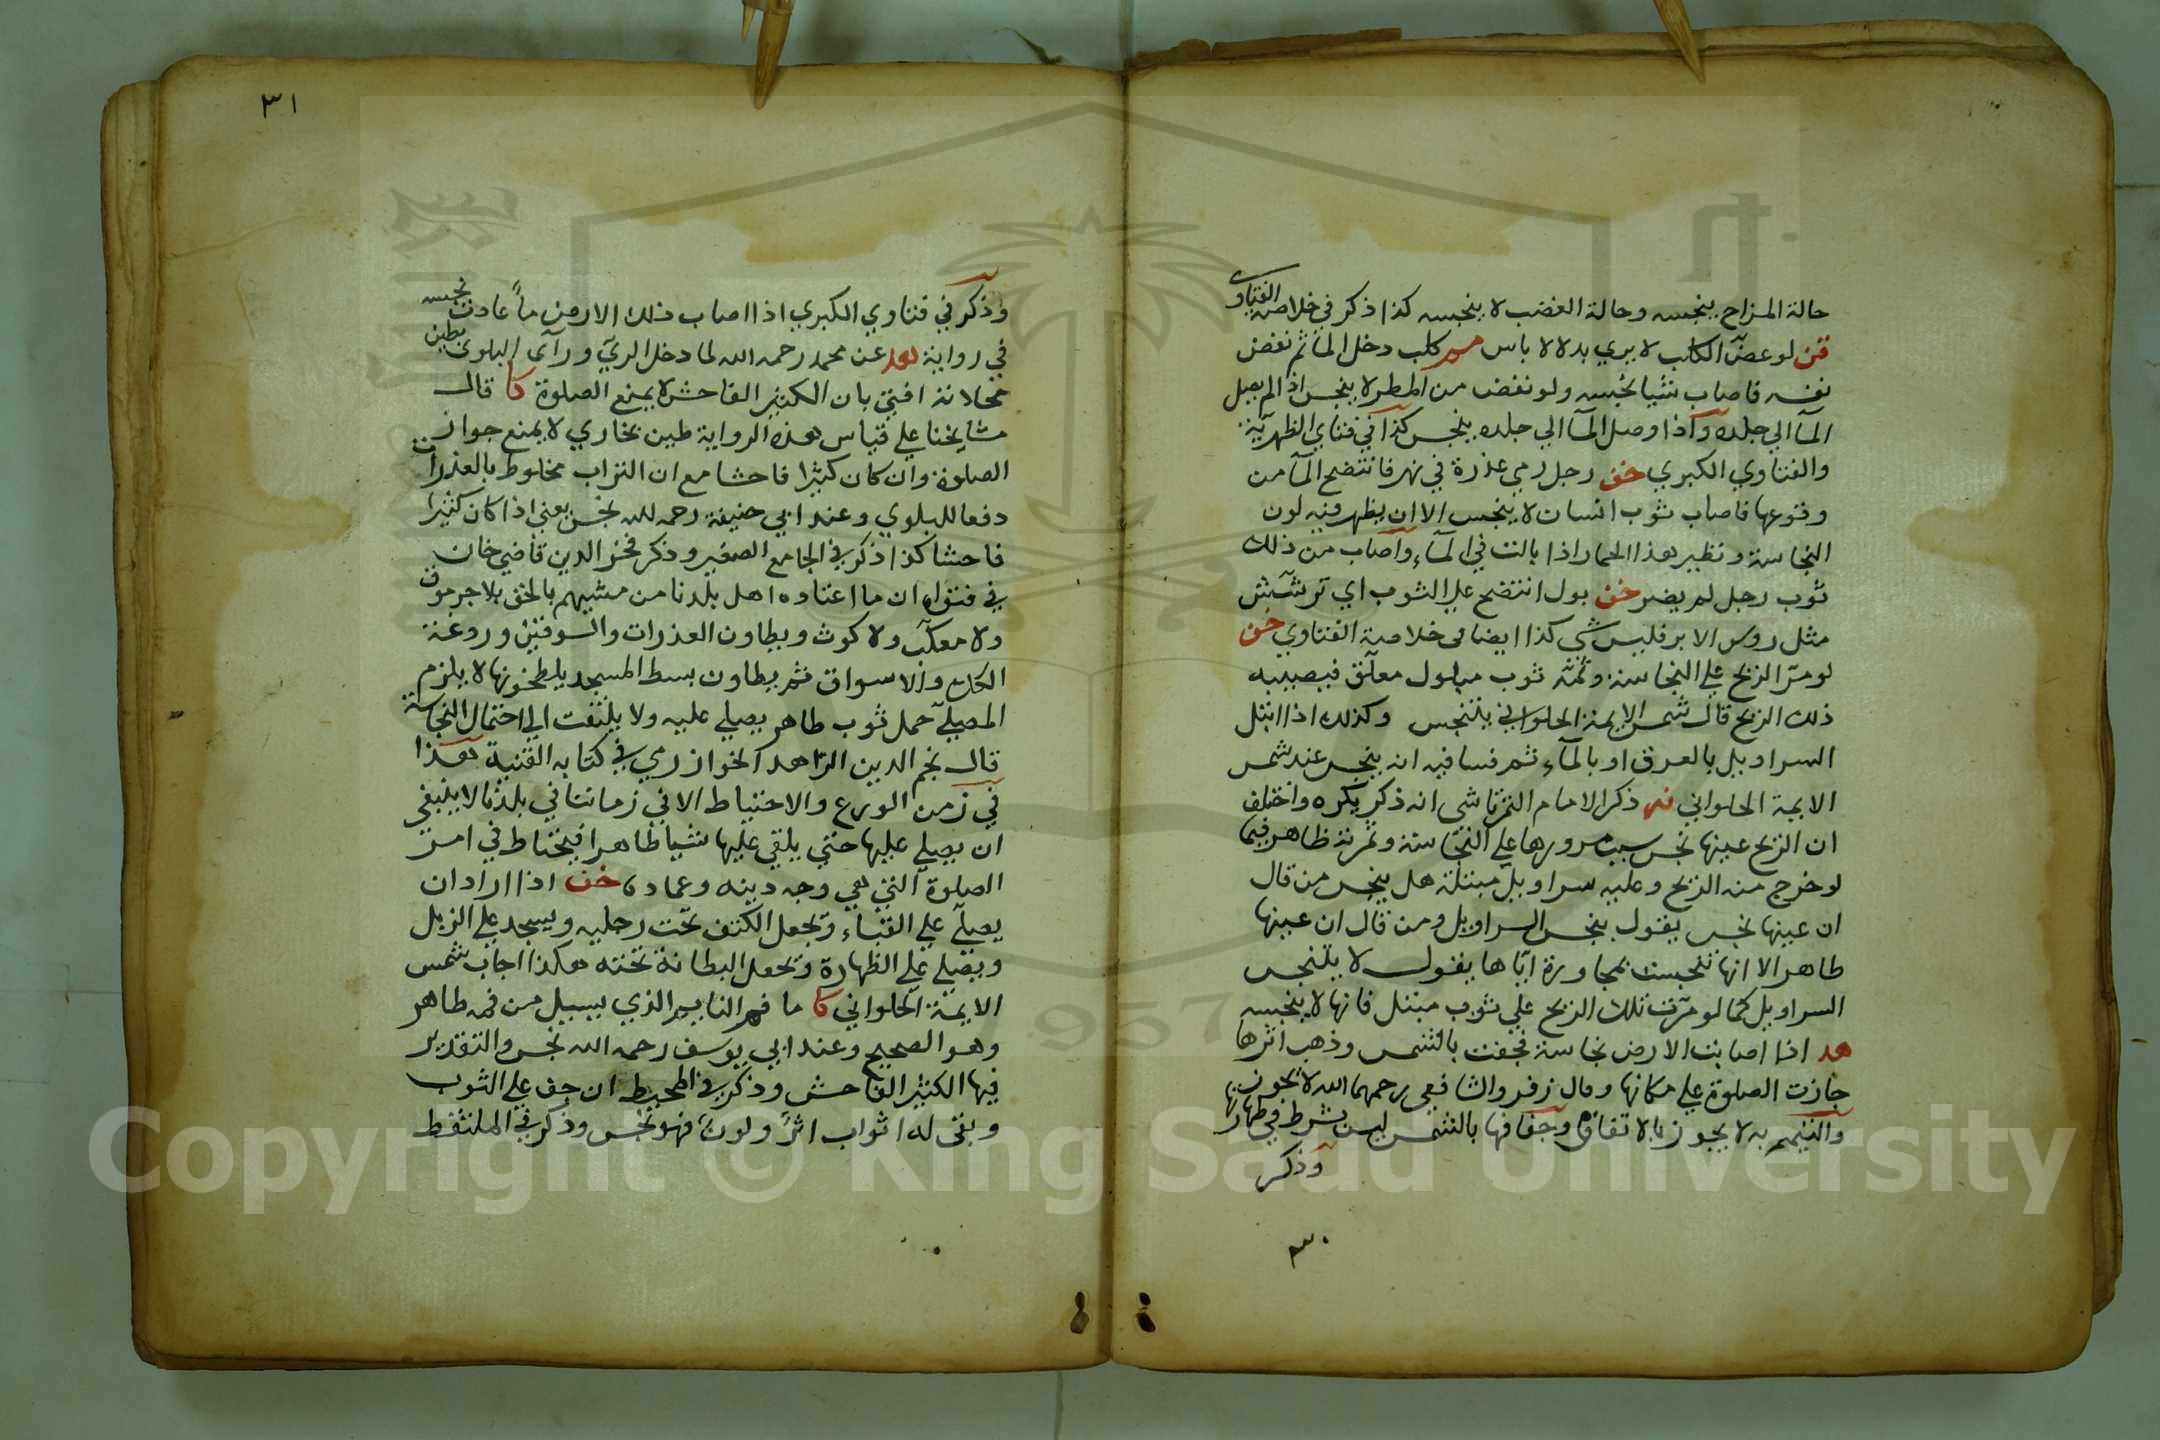 حالة المزاح ينجسه وحالة الغضب لا ينجسه كذا ذكر في خلاصة الفتاوى
قن لو عض الكلب لا يري بللا لا باس كلب دخل الما ثم نفض
نفسه فاصاب شيا نجسه ولو نفض من المطر لا ينجس اذا لم يصل
المآ الي جلده واذا وصل المآ الي جلده ينجس كذا في فتاي الظهرية
والفتاوي الكبري خف رجل رمي عذرة في نهر فانتضح المآ من
وقوعها فاصاب ثوب انسان لا ينجس الا ان يظهر فيه لون
النجاسة ونظير هذا الحمار اذا بالت في المآء واصاب من ذلك
ثوب رجل لم يضر خف بول انتضح علي الثوب اي ترشش
مثل روس الابر فليس شي كذا ايضا في خلاصة الفتاوي خف
لو مر الريح علي النجاسة وثمه ثوب مبلول معلق فيصيبه
ذلك الريح قال شمس الايمة الحلواني يتنجس وكذلك اذا ابتل
السراويل بالعرق او بالمآء ثم فسا فيه انه ينجس عند شمس
الايمة الحلواني ذكر الامام التمرتاشى انه ذكر بكره واختلف
ان الريح عينها نجس بسبب مرورها علي النجاسة وثمرته ظاهر فيما
لو خرج منه الريح وعليه سراويل مبتلة هل ينجس من قال
ان عينها نجس يقول بنجس السراويل ومن قال ان عينها
طاهر الا انها تنجست بمجاورة اياها يقول لا يتنجس
السراويل كما لو مرت تلك الريح علي ثوب مبتل فانها لا ينجسه
هد اذا اصابت الارض نجاسة فجفت بالشمس وذهب اثرها
جازت الصلوة علي مكانها وقال زفر والشافعى رحمهما الله لا تجوز
والتيمم به لا يجوز بالاتفاق وجفافها بالشمس ليس بشرط في طهارتها
وذكر
٣٠
٣١
وذكر في فتاوي الكبري اذا اصاب ذلك الارض مآ عادت نجسه
في رواية هد عن محمد رحمه الله لما دخل الري ورآى البلوى بطين
محلاته افتي بان الكثير الفاحش لا يمنع الصلوة كا قال
مشايخنا علي قياس هذه الرواية طين بخاري لا يمنع جواز
الصلوة وان كان كثيرا فاحشا مع ان التراب مخلوط بالعذرات
دفعا للبلوي وعند ابي حنيفة رحمه الله نجس يعني اذا كان كثيرا
فاحشا كذا ذكر في الجامع الصغير وذكر فخر الدين قاضي خان
في فتواه ان ما اعتاده اهل بلدنا من مشيهم بالخف بلا جرموق
ولا مكعب ولا كوث ويطاون العذرات والسرقين وروعة
الكلاب والاسواق ثم يطاون بسط المسجد يلطخونها لا يلزم
المصلي حمل ثوب طاهر يصلي عليه ولا يلتفت الي احتمال النجاسة
قال نجم الدين الزاهد الخوارزمي في كتابه القنية هذا
في زمن الورع والاحتياط الا في زماننا في بلدنا لا ينبغي
ان يصلي عليها حتي يلقي عليها شيا طاهرا فيحتاط في امر
الصلوة التي هي وجه دينه وعماده خف اذا اراد ان
يصلي علي القبآء ويجعل الكتف تحت رجليه ويسجد علي الزيل
ويصلي علي الظهارة ويجعل البطانة تحته هكذا اجاب شمس
الايمة الحلواني كا ما فم النايم الذي يسيل من فمه طاهر
وهو الصحيح وعند ابي يوسف رحمه الله نجس والتقدير
فيها الكثير الفاحش وذكر في المحيط ان جف علي الثوب
وبقى له اثواب اثر ولون فهو نجس وذكر في الملتقط